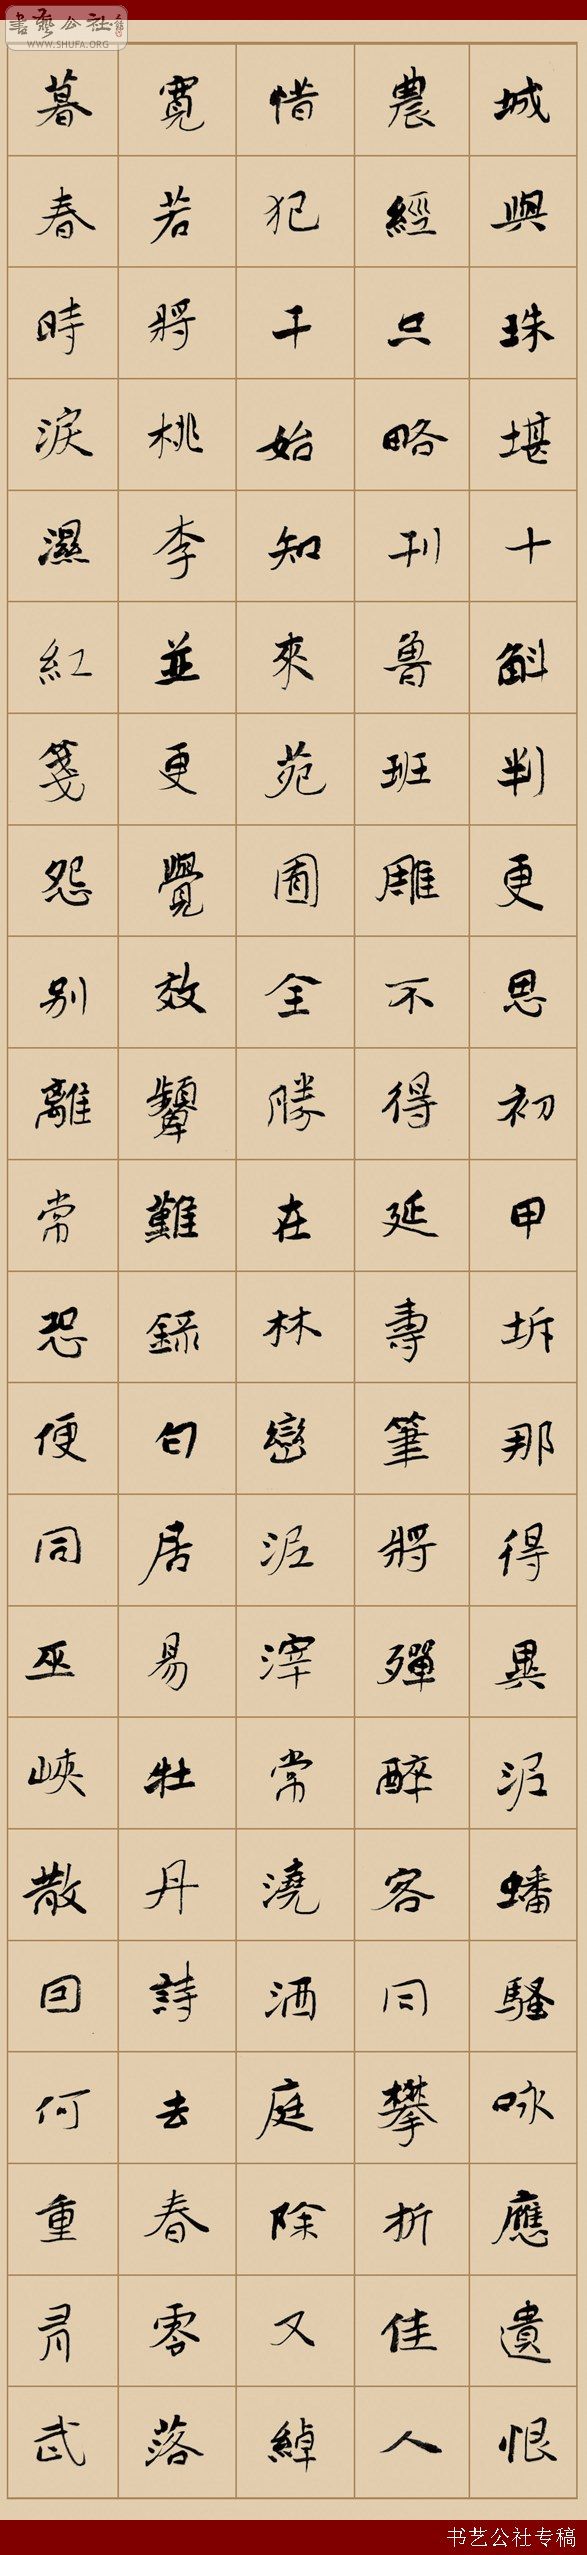 書藝公社
WWW.SHUFA.ORG
城與珠堪十斛判更思初甲坼那得異泥蟠騷咏應遺恨
農經只略刊魯班雕不得延壽筆將殫醉客同攀折佳人
惜犯干始知來苑囿全勝在林巒泥滓常澆洒庭除又綽
寬若將桃李並更覺效顰難錄白居易牡丹詩去春零落
暮春時淚濕紅箋怨別離常恐便同巫峽散因何重有武
书艺公社专稿